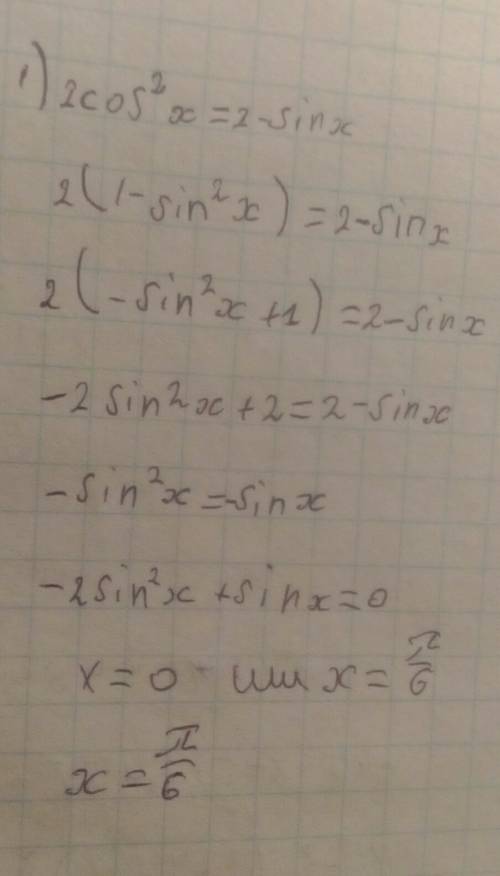 1) 2cos²x=2-sinx
2(1-sin²x)=2-sinx
2(-sin²x+1)=2-sinx
-2sin²x+2=2-sinx
-sin²x=-sinx
-2sin²x+sinx=0
x=0 или x=π/6
x=π/6